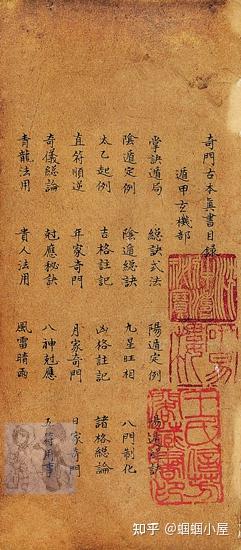 奇門古本眞書目錄
遁甲玄機部
掌訣遁局 總訣式法 陽遁定例 陽遁總訣
陰遁定例 陰遁總訣 九星旺相 八門制化
太乙起例 吉格註記 凶格註記 諸格總論
直符順逆 年家奇門 月家奇門 日家奇門
奇儀總論 尅應秘訣 八神尅應 五符用事
青龍法用 貴人法用 風雷晴雨
知乎 @蝈蝈小屋